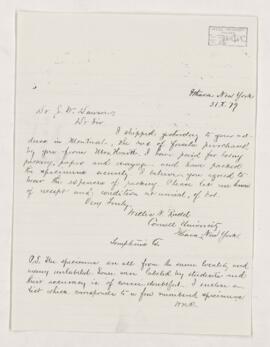 Ithaca, New York
Dr. G. W. Dawson
Dr Sir
I shipped yesterday to your ad-
dress in Montreal, the rest of fossils purchased
by you from
I have paid for boxes
packing, paper and
and have packed
the specimens securely. I believe you agreed to
bear the expenses of packing. Please let me know
of receipt and condition at arrival, of lot.
Very Truly,
Cornell University
Ithaca, New York.
P.S. The specimens are all from the same locality and
many unlabeled. Some were labeled by students and
their accuracy is of course doubtful. I enclose a
list which corresponds to a few numbered specimens